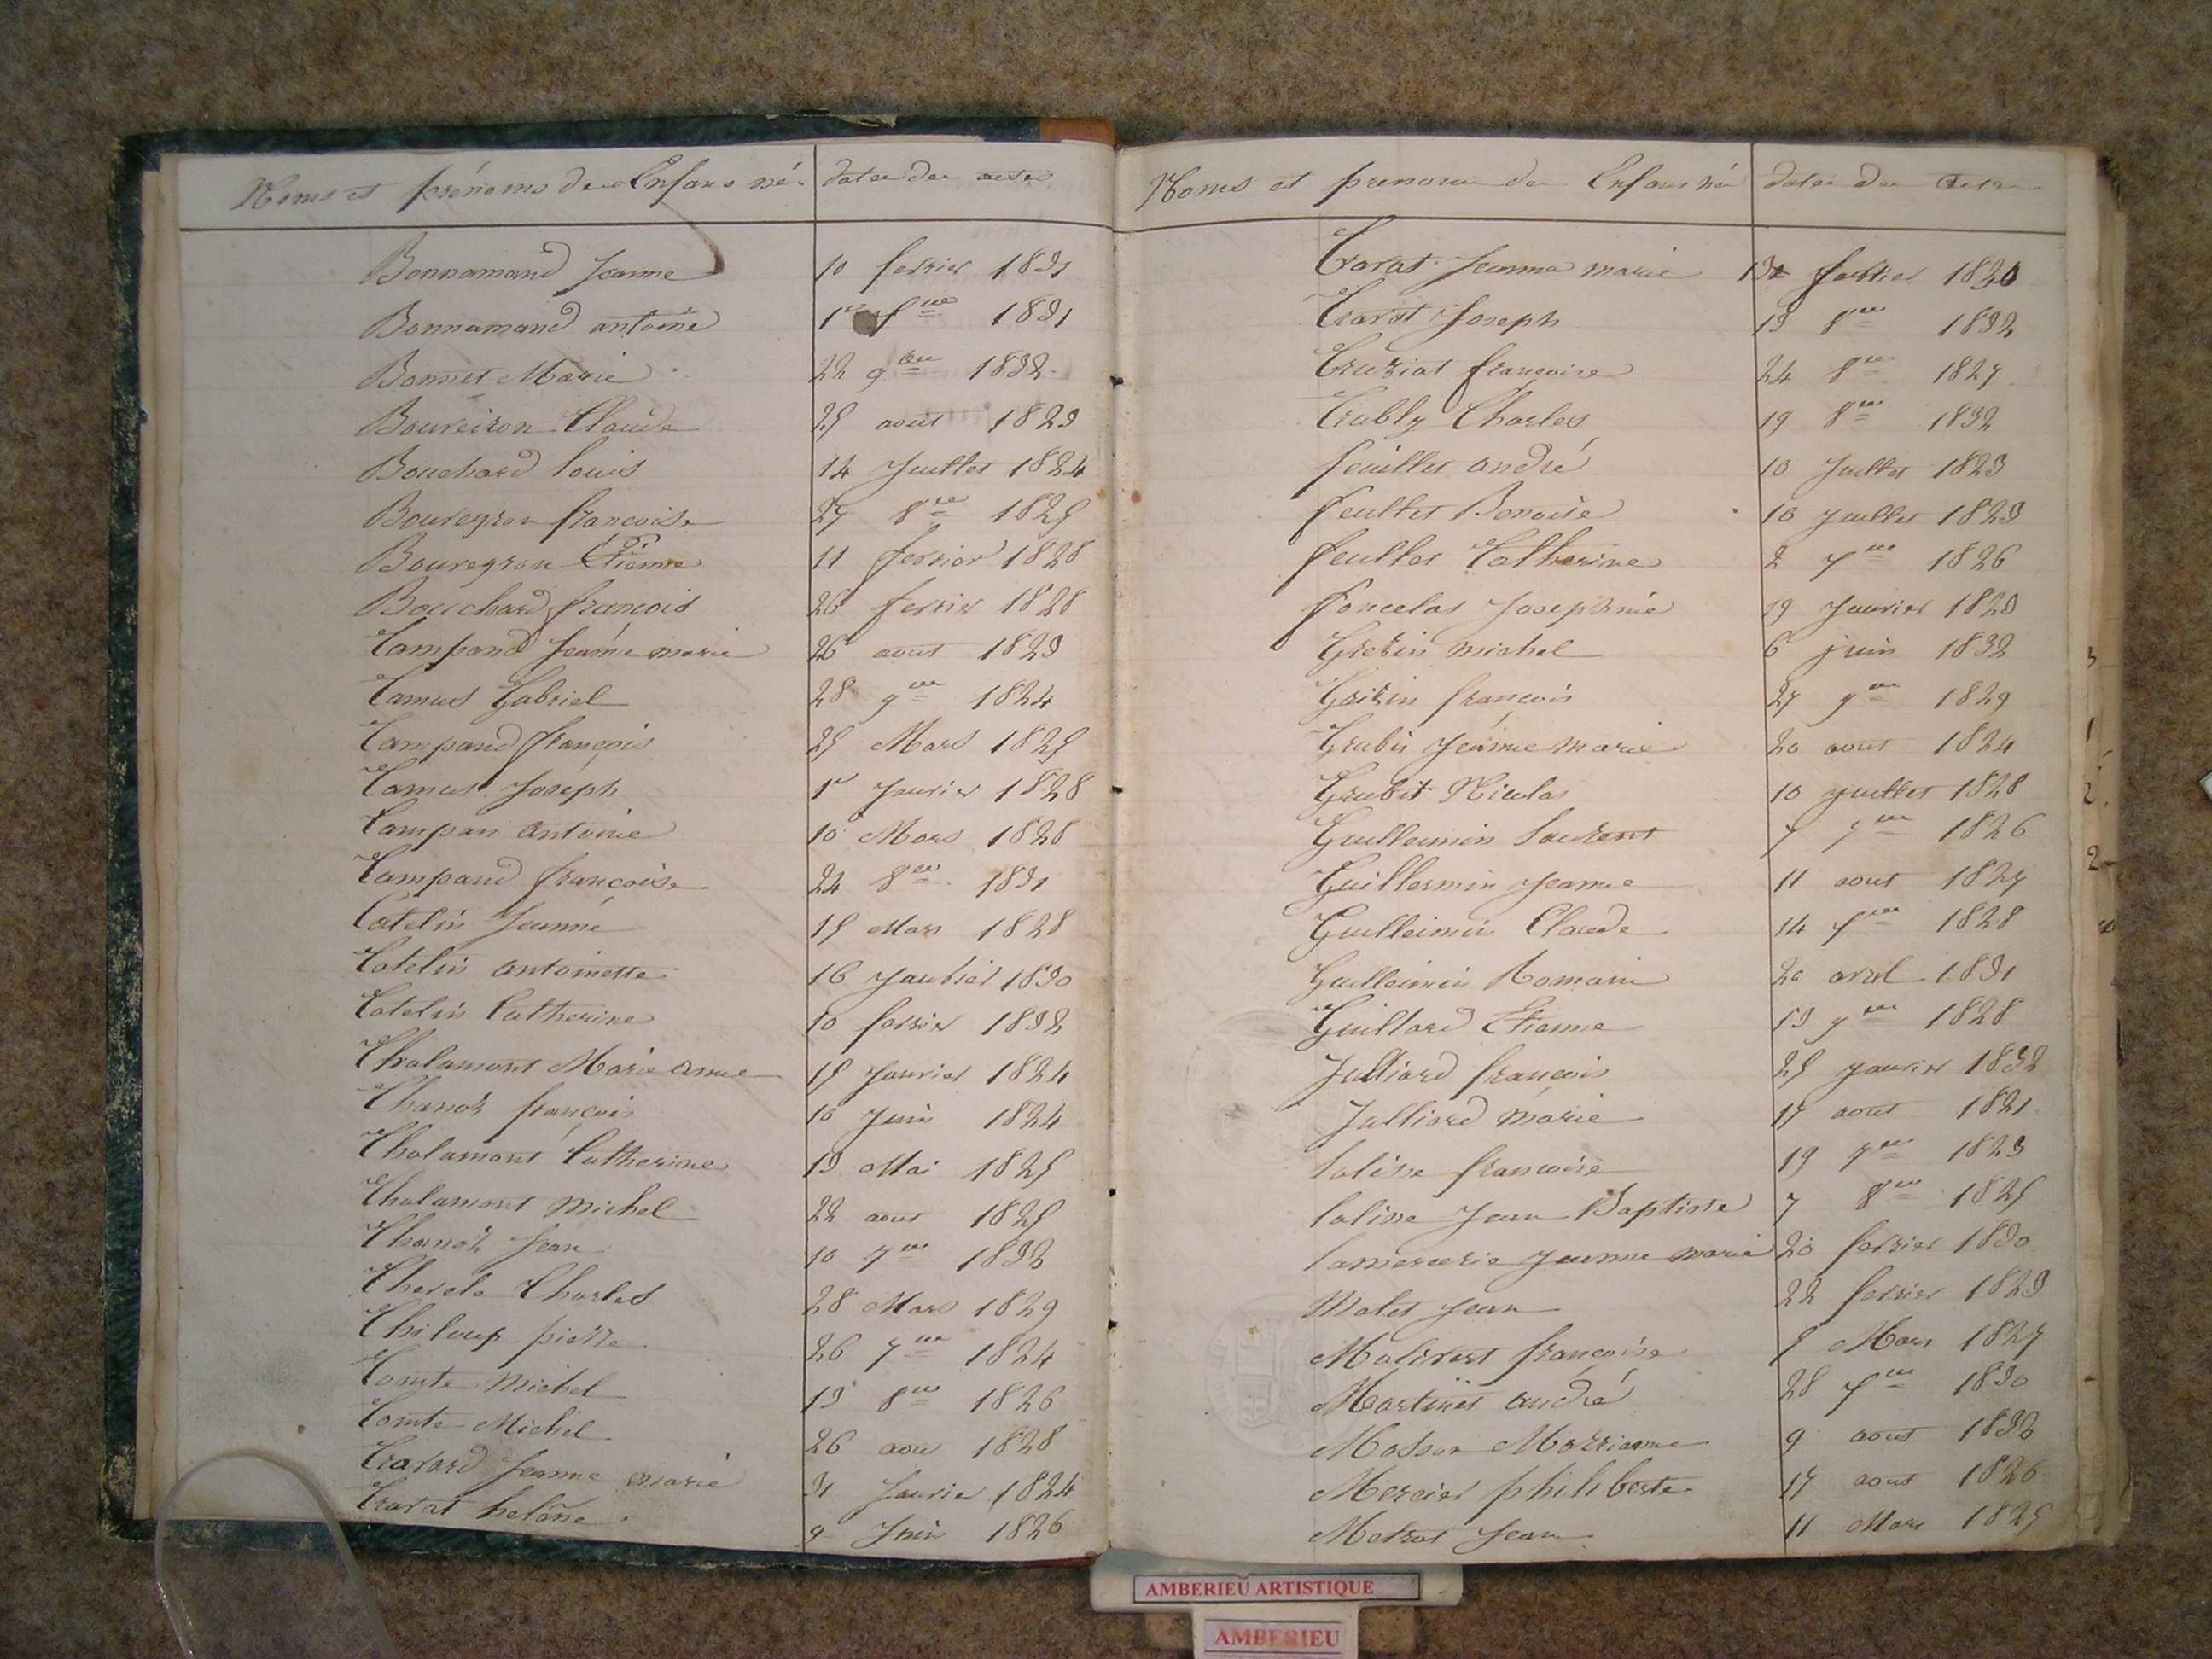 Noms et prénoms des Enfans nés
dates des actes
Bonnamand Jeanne 10 fevrier 1831
Bonnamand antoine 1831
Bonnet Marie 22 9bre 1832
Boureiron Claude 25 aout 1823
Bouchard louis 14 Juillet 1824
Boureyron francoise 27 8bre 1825
Boureyron Etienne 11 fevrier 1828
Bouchard francois 26 fevrier 1828
Campand Jeanne marie 26 aout 1823
Camus Gabriel 28 9bre 1824
Campand françois 25 Mars 1825
Camus Joseph 1er Janvier 1828
Campan antoine 10 Mars 1828
Campand françoise 24 8bre 1831
Catelin Jeanne 15 Mars 1828
Catelin antoinette 16 Janvier 1830
Catelin Catherine 10 fevrier 1832
Chalamont Marie anne 15 Janvier 1824
Chanoz françois 10 Juin 1824
Chalamont Catherine 13 Mai 1825
Chalamont Michel 22 aout 1825
Chanoz Jean 10 7bre 1832
Charles 28 Mars 1829
Chiloup pierre 26 7bre 1824
Comte Michel 13 8bre 1826
Comte Michel 26 aout 1828
Jeanne marie 31 Janvier 1824
Cravat helène 9 Juin 1826
Noms et prenoms des Enfans nés
dates des actes
Cravat Jeanne marie fevrier
Cravat Joseph 13 8bre 1832
Cruziat françoise 24 8bre 1827
Crubly Charles 19 8bre 1832
feuillet andré 10 Juillet 1823
feullet Benoise 10 Juillet 1823
feullet Catherine 2 7bre 1826
foncelas Josephine 19 Janvier 1823
Grezin michel 6 juin 1832
françois 27 9bre 1829
Grubit Jeanne marie 20 aout 1824
Grubit Nicolas 10 Juillet 1828
Guillermin Laurent 7 7bre 1826
Guillermin Jeanne 11 aout 1827
Guillermin Claude 14 7bre 1828
Guillermin Romain 20 avril 1831
Guillard Etienne 13 9bre 1828
Julliard françois 25 Janvier 1832
Julliard marie 17 aout 1821
Laline francoise 19 7bre 1823
Laline Jean Baptiste 7 8bre 1825
Lamercerie Jeanne marie 20 fevrier 1830
Molet Jean 22 fevrier 1823
françoise 5 Mars 1827
Martinet andré 28 7bre 1830
Marrianne 9 aout 1832
Mercier philiberte 17 aout 1826
Metrat Jean 11 Mars 1825
3
1
2
2
AMBERIEU ARTISTIQUE
AMBERIEU